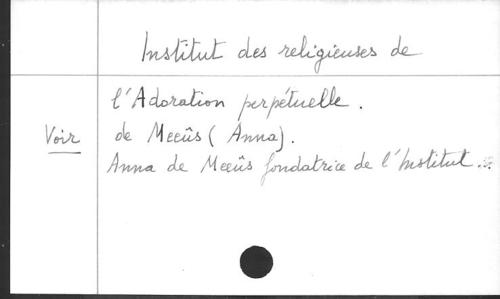 Institut des religieuses de
l'Adoration perpétuelle.
Voir de Meeûs (Anna).
Anna de Meeûs fondatrice de l'Institut.